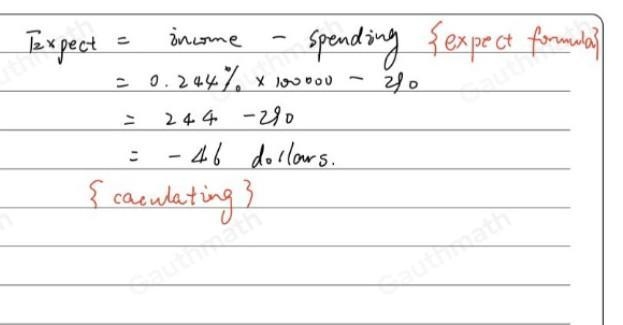 Expect = income - spending {expect formula}
= 0.244% × 100000 - 290
= 244 - 290
= - 46 dollars.
{caculating}
Gauthmath
Gauthmath